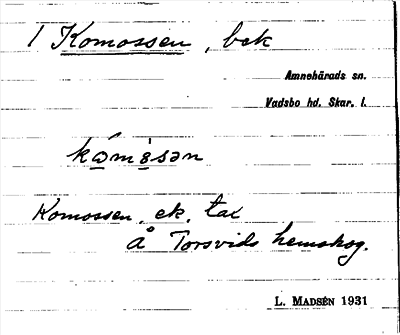 1 Komossen, bek
Amnehärads sn.
Vadsbo hd. Skar. l.
kómòsən
Komossen, ek. tax
Å Torsvids hemskog.
L. MADSÉN 1931